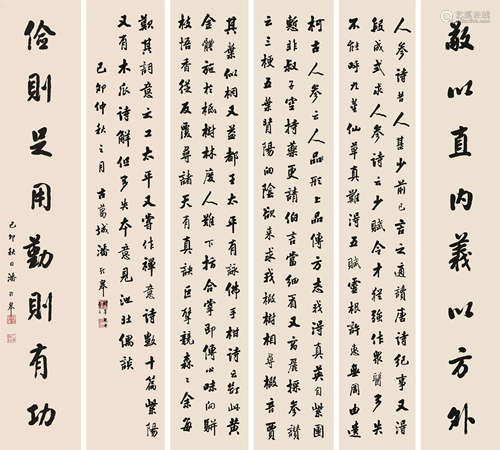 敬以直内義以方外
人參詩昔人甚少前已言之適讀唐詩紀事又得
段成式求人參詩云少賦令才猶強作衆醫多失
不能呼九莖仙草真難得五賦靈根許惠無周由遺
柯古人參云人品形上品傳方志我得真英自紫團
慙非叔子空持藥更請伯言當細看又高麗採參讚
云三梗五葉背陽向陰欲來求我椵樹相尋椵音賈
其葉似桐又益都王太平有詠佛手柑詩云對此黃
金體施於祗樹林度人難下指合掌即傳心味向駢
枝悟香從反覆尋諸天有真訣巨擘視森森余每
歎其詞意之工太平又嘗作禪意詩數十篇紫陽
又有木瓜詩解但多失本意見池北偶談
己卯仲秋之月古葛城潘齡皋
儉則足用勤則有功
己卯秋日潘齡皋